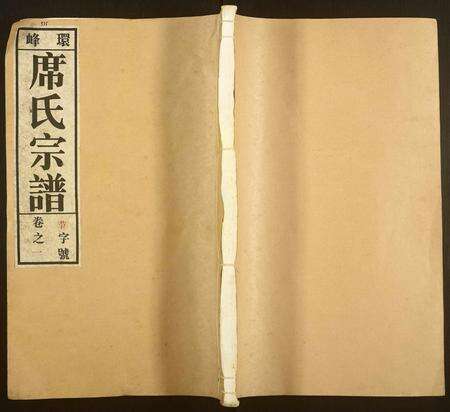 環峰
席氏宗譜
字號
卷之一